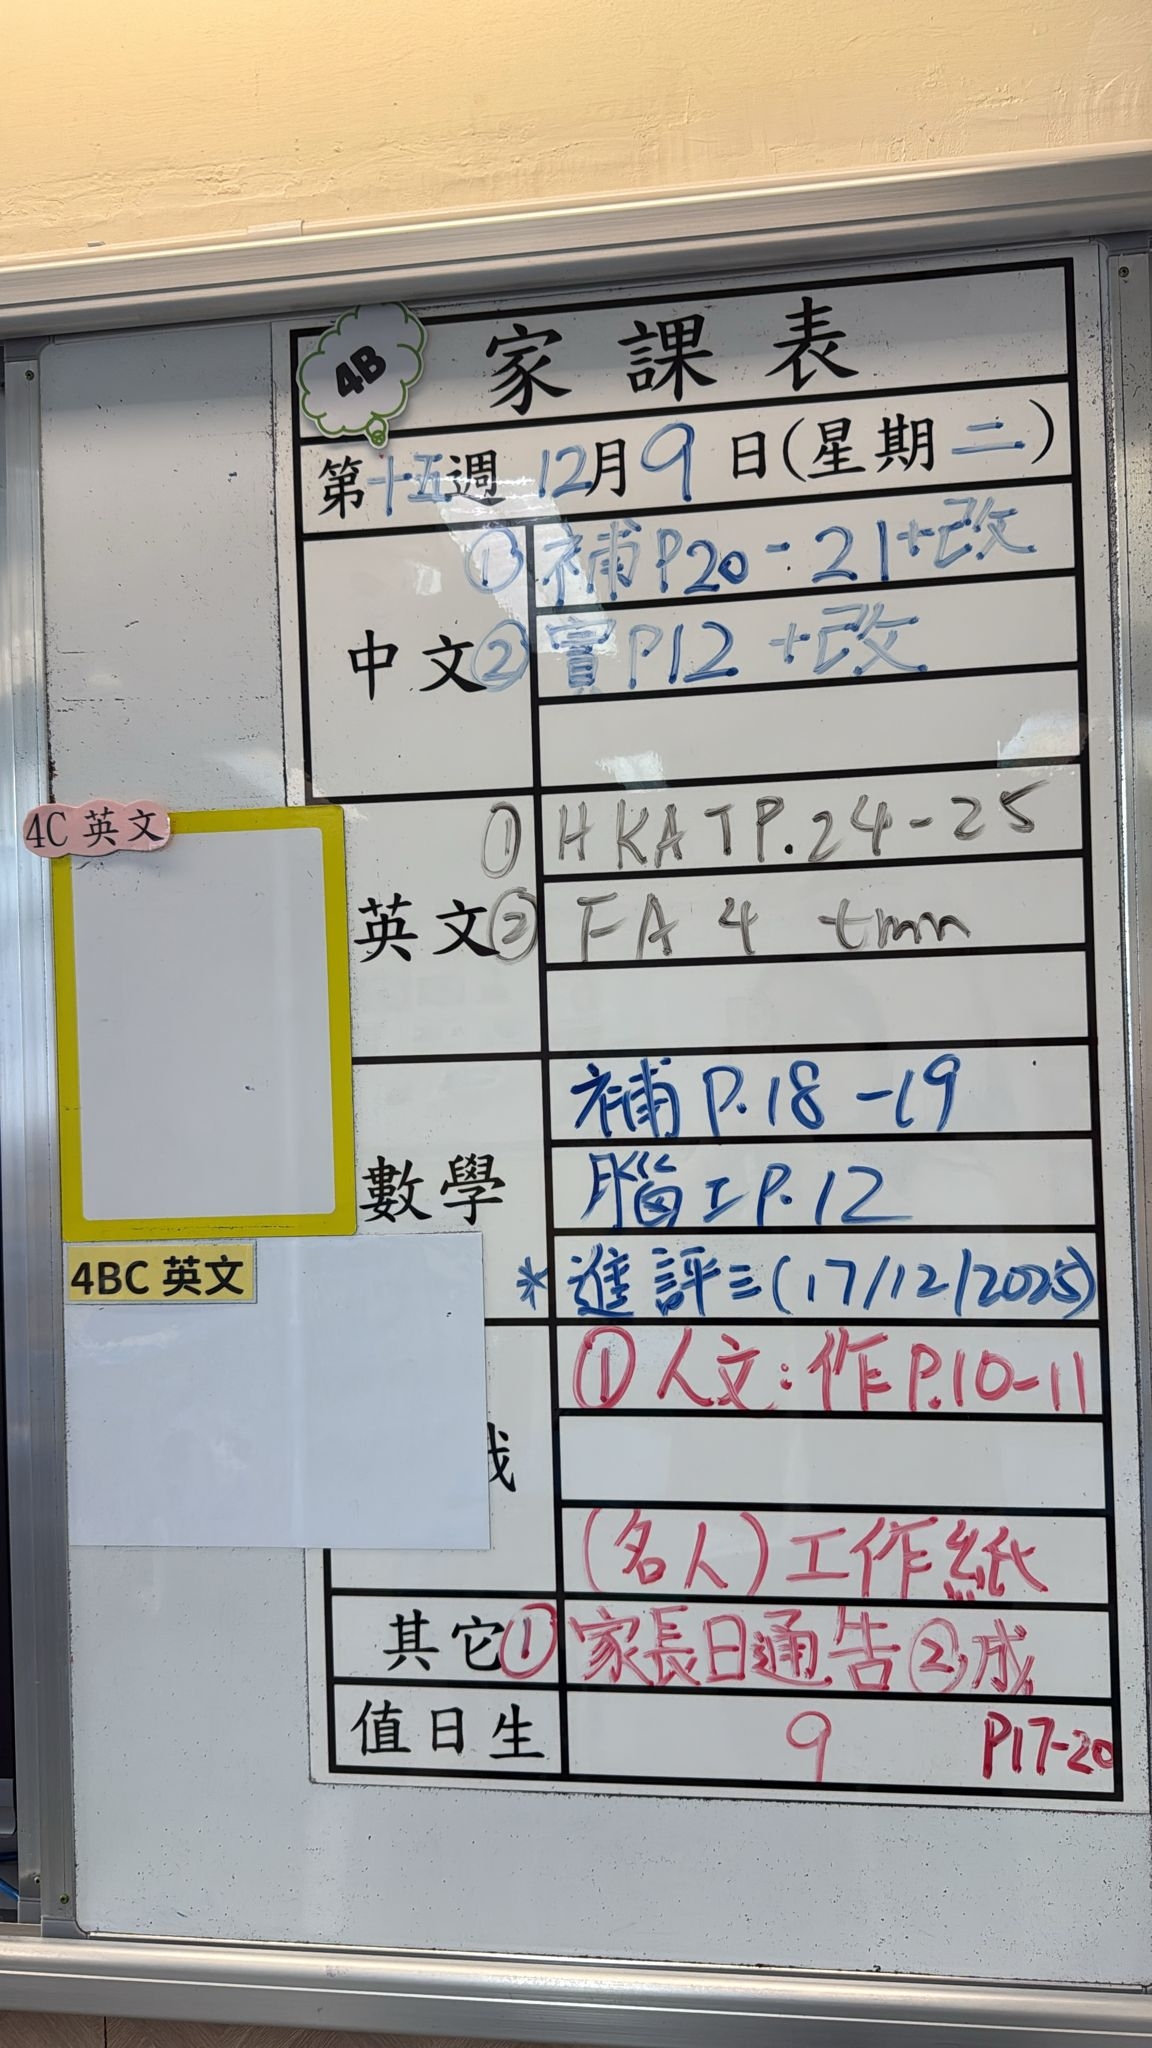 4B
家課表
第十五週 12月9日(星期二)
中文
① 補P20-21+改
② 實P12 +改
4C 英文
英文
① HKAT P.24-25
② FA 4 tmn
數學
補 P.18-19
腦工P.12
* 進評三(17/12/2025)
4BC 英文
① 人文:作P.10-11
(名人)工作紙
其它
① 家長日通告 ② 成
P17-20
值日生
9